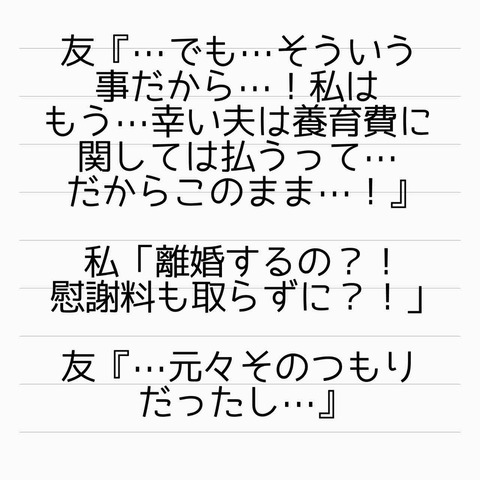 友『…でも…そういう
事だから…！私は
もう…幸い夫は養育費に
関しては払うって…
だからこのまま…！』
私「離婚するの？！
慰謝料も取らずに？！」
友『…元々そのつもり
だったし…』